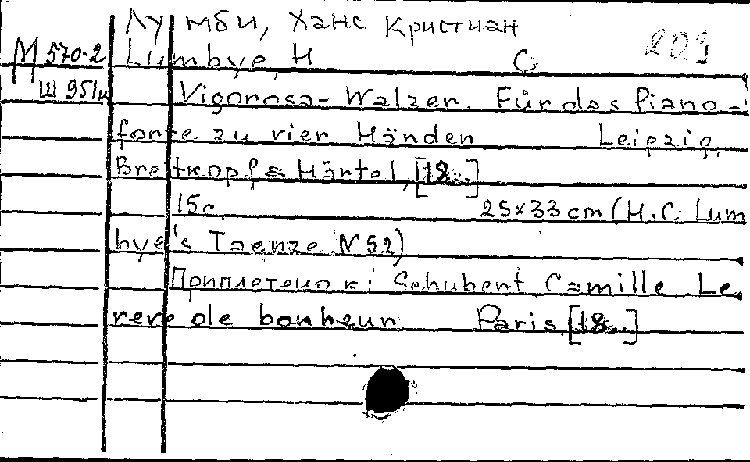 Лумби, Ханс Кристиан
М 570-2 Lumbye, H C
Ш 951 Vigorosa-Walzer. Für das Piano-
forte zu vier Händen Leipzig,
Breitkopf & Härtel, [18..]
15c. 25x33 cm (H.C. Lum
bye's Taenze N 52)
Приплетено к: Schubert Camille Le
reve de bonheur Paris, [18..]